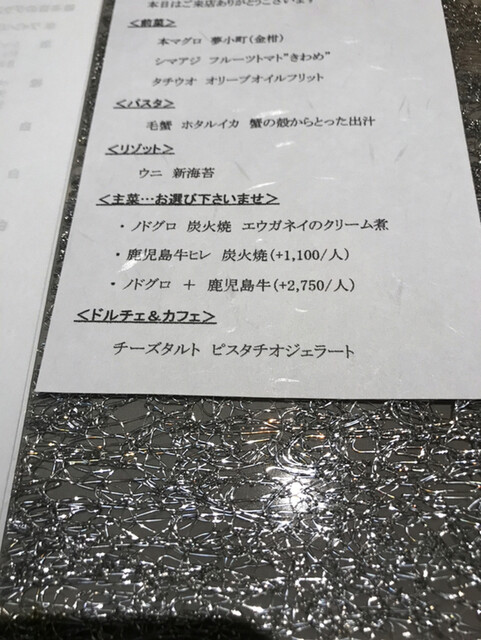 本日はご来店ありがとうございます
<前菜>
本マグロ 夢小町(金柑)
シマアジ フルーツトマト"きわめ"
タチウオ オリーブオイルフリット
<パスタ>
毛蟹 ホタルイカ 蟹の殻からとった出汁
<リゾット>
ウニ 新海苔
<主菜…お選び下さいませ>
・ノドグロ 炭火焼 エウガネイのクリーム煮
・鹿児島牛ヒレ 炭火焼(+1,100/人)
・ノドグロ + 鹿児島牛(+2,750/人)
<ドルチェ&カフェ>
チーズタルト ピスタチオジェラート